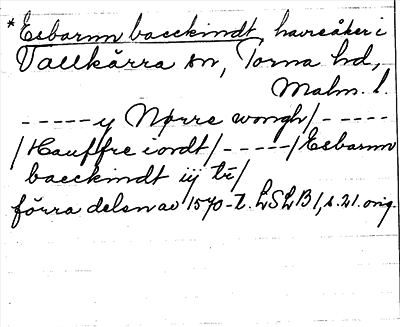 *Esbarnn baeckindt, havreåker i
Vallkärra sn, Torna hd,
Malm. l.
-----y Nørre wongh/-----
/Hauffre iordt/-----/Esbarnn
baeckindt iij tr/
förra delen av 1570-t. LSLB 1, s. 21. orig.